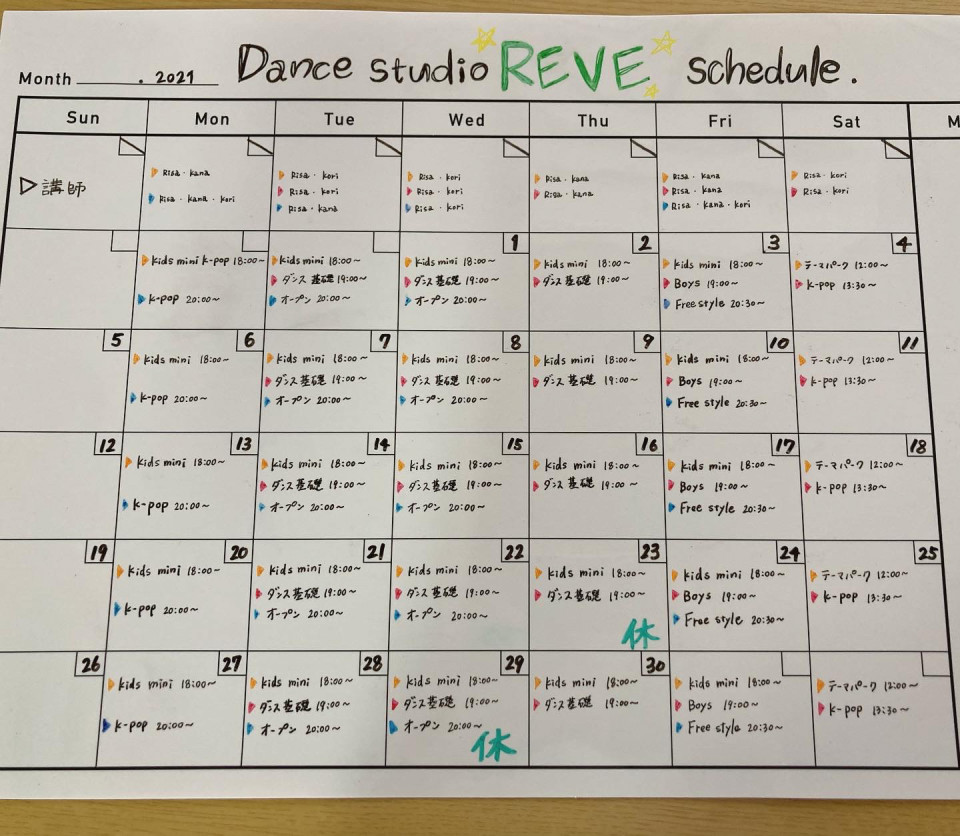 Dance studio REVE schedule.
Month . 2021
Sun Mon Tue Wed Thu Fri Sat M
▷講師
Risa・kana
Risa・kana・kori
Risa・kori
Risa・kori
Risa・kana
Risa・kori
Risa・kori
Risa・kori
Risa・kana
Risa・kana
Risa・kana
Risa・kana
Risa・kana・kori
Risa・kori
Risa・kori
kids mini k-pop 18:00~
k-pop 20:00~
kids mini 18:00~
ダンス基礎 19:00~
オープン 20:00~
1
kids mini 18:00~
ダンス基礎 19:00~
オープン 20:00~
2
kids mini 18:00~
ダンス基礎 19:00~
3
kids mini 18:00~
Boys 19:00~
Free style 20:30~
4
テーマパーク 12:00~
k-pop 13:30~
5
6
kids mini 18:00~
k-pop 20:00~
7
kids mini 18:00~
ダンス基礎 19:00~
オープン 20:00~
8
kids mini 18:00~
ダンス基礎 19:00~
オープン 20:00~
9
kids mini 18:00~
ダンス基礎 19:00~
10
kids mini 18:00~
Boys 19:00~
Free style 20:30~
11
テーマパーク 12:00~
k-pop 13:30~
12
13
kids mini 18:00~
k-pop 20:00~
14
kids mini 18:00~
ダンス基礎 19:00~
オープン 20:00~
15
kids mini 18:00~
ダンス基礎 19:00~
オープン 20:00~
16
kids mini 18:00~
ダンス基礎 19:00~
17
kids mini 18:00~
Boys 19:00~
Free style 20:30~
18
テーマパーク 12:00~
k-pop 13:30~
19
20
kids mini 18:00~
k-pop 20:00~
21
kids mini 18:00~
ダンス基礎 19:00~
オープン 20:00~
22
kids mini 18:00~
ダンス基礎 19:00~
オープン 20:00~
23
kids mini 18:00~
ダンス基礎 19:00~
休
24
kids mini 18:00~
Boys 19:00~
Free style 20:30~
25
テーマパーク 12:00~
k-pop 13:30~
26
27
kids mini 18:00~
k-pop 20:00~
28
kids mini 18:00~
ダンス基礎 19:00~
オープン 20:00~
29
kids mini 18:00~
ダンス基礎 19:00~
オープン 20:00~
休
30
kids mini 18:00~
ダンス基礎 19:00~
kids mini 18:00~
Boys 19:00~
Free style 20:30~
テーマパーク 12:00~
k-pop 13:30~